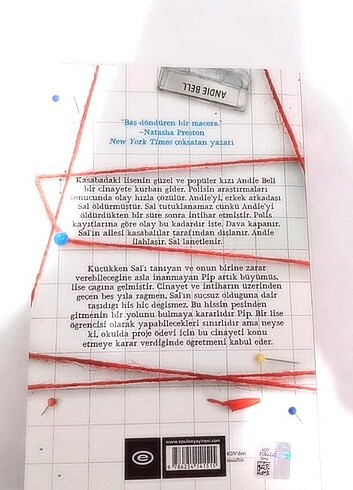 ANDIE BELL
"Baş döndüren bir macera."
–Natasha Preston
New York Times çoksatan yazarı
Kasabadaki lisenin güzel ve popüler kızı Andie Bell
bir cinayete kurban gider. Polisin araştırmaları
sonucunda olay hızla çözülür. Andie'yi, erkek arkadaşı
Sal öldürmüştür. Sal tutuklanamaz çünkü Andie'yi
öldürdükten bir süre sonra intihar etmiştir. Polis
kayıtlarına göre olay bu kadardır işte. Dava kapanır.
Sal'ın ailesi kasabalılar tarafından dışlanır. Andie
ilahlaşır. Sal lanetlenir.
Küçükken Sal'ı tanıyan ve onun birine zarar
verebileceğine asla inanmayan Pip artık büyümüş,
lise çağına gelmiştir. Cinayet ve intiharın üzerinden
geçen beş yıla rağmen, Sal'ın suçsuz olduğuna dair
taşıdığı his hiç değişmez. Bu hissin peşinden
gitmenin bir yolunu bulmaya kararlıdır Pip. Bir lise
öğrencisi olarak yapabilecekleri sınırlıdır ama neyse
ki, okulda proje ödevi için bu cinayeti konu
etmeye karar verdiğinde öğretmeni kabul eder.
www.epsilonyayinevi.com
KDV'den
muaftır.
9 786254 141515